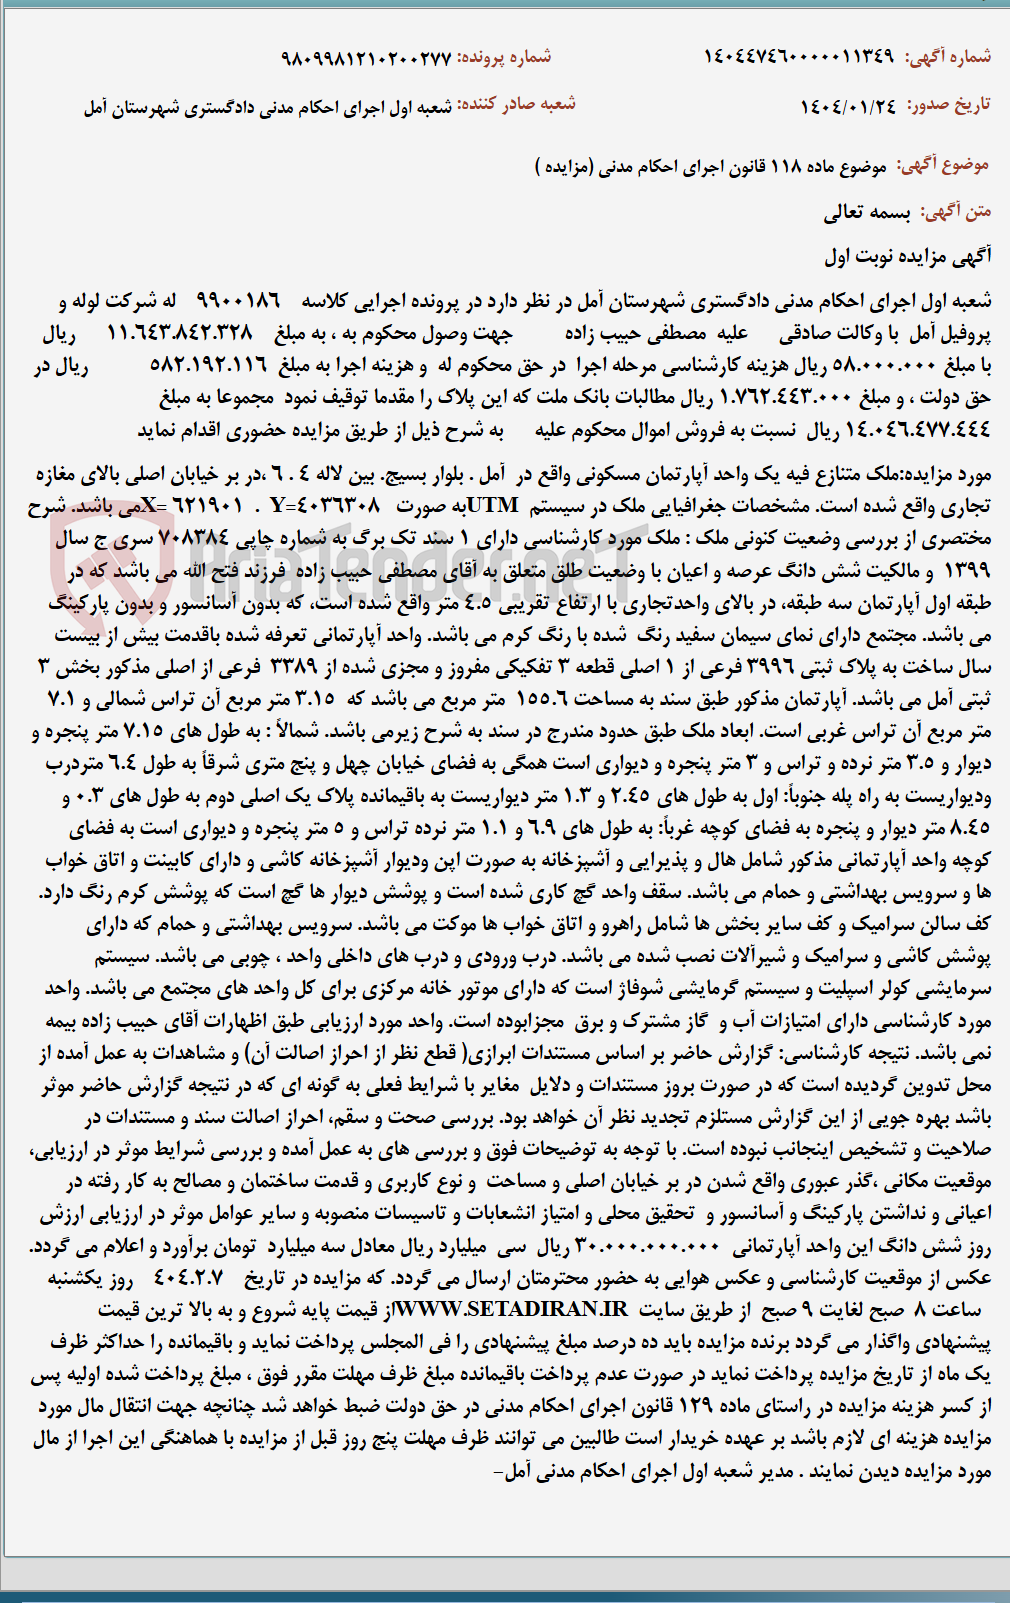 شماره آگهی: ۱۴۰۴۴۷۴۶۰۰۰۰۰۱۱۳۴۹ شماره پرونده: ۹۸۰۹۹۸۱۲۱۰۲۰۰۲۷۷
تاریخ صدور: ۱۴۰۴/۰۱/۲۴ شعبه صادر کننده: شعبه اول اجرای احکام مدنی دادگستری شهرستان آمل
موضوع آگهی: موضوع ماده ۱۱۸ قانون اجرای احکام مدنی (مزایده )
متن آگهی: بسمه تعالی
آگهی مزایده نوبت اول
شعبه اول اجرای احکام مدنی دادگستری شهرستان آمل در نظر دارد در پرونده اجرایی کلاسه ۹۹۰۰۱۸۶ له شرکت لوله و
پروفیل آمل با وکالت صادقی علیه مصطفی حبیب زاده جهت وصول محکوم به ، به مبلغ ۱۱.۶۴۳.۸۴۲.۳۲۸ ریال
با مبلغ ۵۸.۰۰۰.۰۰۰ ریال هزینه کارشناسی مرحله اجرا در حق محکوم له و هزینه اجرا به مبلغ ۵۸۲.۱۹۲.۱۱۶ ریال در
حق دولت ، و مبلغ ۱.۷۶۲.۴۴۳.۰۰۰ ریال مطالبات بانک ملت که این پلاک را مقدما توقیف نمود مجموعا به مبلغ
۱۴.۰۴۶.۴۷۷.۴۴۴ ریال نسبت به فروش اموال محکوم علیه به شرح ذیل از طریق مزایده حضوری اقدام نماید
مورد مزایده:ملک متنازع فیه یک واحد آپارتمان مسکونی واقع در آمل . بلوار بسیج. بین لاله ۴ . ۶ ،در بر خیابان اصلی بالای مغازه
تجاری واقع شده است. مشخصات جغرافیایی ملک در سیستم UTMبه صورت Y=۴۰۳۶۳۰۸ . X= ۶۲۱۹۰۱می باشد. شرح
مختصری از بررسی وضعیت کنونی ملک : ملک مورد کارشناسی دارای ۱ سند تک برگ به شماره چاپی ۷۰۸۳۸۴ سری ج سال
۱۳۹۹ و مالکیت شش دانگ عرصه و اعیان با وضعیت طلق متعلق به آقای مصطفی حبیب زاده فرزند فتح الله می باشد که در
طبقه اول آپارتمان سه طبقه، در بالای واحدتجاری با ارتفاع تقریبی ۴.۵ متر واقع شده است، که بدون آسانسور و بدون پارکینگ
می باشد. مجتمع دارای نمای سیمان سفید رنگ شده با رنگ کرم می باشد. واحد آپارتمانی تعرفه شده باقدمت بیش از بیست
سال ساخت به پلاک ثبتی ۳۹۹۶ فرعی از ۱ اصلی قطعه ۳ تفکیکی مفروز و مجزی شده از ۳۳۸۹ فرعی از اصلی مذکور بخش ۳
ثبتی آمل می باشد. آپارتمان مذکور طبق سند به مساحت ۱۵۵.۶ متر مربع می باشد که ۳.۱۵ متر مربع آن تراس شمالی و ۷.۱
متر مربع آن تراس غربی است. ابعاد ملک طبق حدود مندرج در سند به شرح زیرمی باشد. شمالاً : به طول های ۷.۱۵ متر پنجره و
دیوار و ۳.۵ متر نرده و تراس و ۳ متر پنجره و دیواری است همگی به فضای خیابان چهل و پنج متری شرقاً به طول ۶.۴ متردرب
ودیواریست به راه پله جنوباً: اول به طول های ۲.۴۵ و ۱.۳ متر دیواریست به باقیمانده پلاک یک اصلی دوم به طول های ۰.۳ و
۸.۴۵ متر دیوار و پنجره به فضای کوچه غرباً: به طول های ۶.۹ و ۱.۱ متر نرده تراس و ۵ متر پنجره و دیواری است به فضای
کوچه واحد آپارتمانی مذکور شامل هال و پذیرایی و آشپزخانه به صورت اپن ودیوار آشپزخانه کاشی و دارای کابینت و اتاق خواب
ها و سرویس بهداشتی و حمام می باشد. سقف واحد گچ کاری شده است و پوشش دیوار ها گچ است که پوشش کرم رنگ دارد.
کف سالن سرامیک و کف سایر بخش ها شامل راهرو و اتاق خواب ها موکت می باشد. سرویس بهداشتی و حمام که دارای
پوشش کاشی و سرامیک و شیرآلات نصب شده می باشد. درب ورودی و درب های داخلی واحد ، چوبی می باشد. سیستم
سرمایشی کولر اسپلیت و سیستم گرمایشی شوفاژ است که دارای موتور خانه مرکزی برای کل واحد های مجتمع می باشد. واحد
مورد کارشناسی دارای امتیازات آب و گاز مشترک و برق مجزابوده است. واحد مورد ارزیابی طبق اظهارات آقای حبیب زاده بیمه
نمی باشد. نتیجه کارشناسی: گزارش حاضر بر اساس مستندات ابرازی( قطع نظر از احراز اصالت آن) و مشاهدات به عمل آمده از
محل تدوین گردیده است که در صورت بروز مستندات و دلایل مغایر با شرایط فعلی به گونه ای که در نتیجه گزارش حاضر موثر
باشد بهره جویی از این گزارش مستلزم تجدید نظر آن خواهد بود. بررسی صحت و سقم، احراز اصالت سند و مستندات در
صلاحیت و تشخیص اینجانب نبوده است. با توجه به توضیحات فوق و بررسی های به عمل آمده و بررسی شرایط موثر در ارزیابی،
موقعیت مکانی ،گذر عبوری واقع شدن در بر خیابان اصلی و مساحت و نوع کاربری و قدمت ساختمان و مصالح به کار رفته در
اعیانی و نداشتن پارکینگ و آسانسور و تحقیق محلی و امتیاز انشعابات و تاسیسات منصوبه و سایر عوامل موثر در ارزیابی ارزش
روز شش دانگ این واحد آپارتمانی ۳۰.۰۰۰.۰۰۰.۰۰۰ ریال سی میلیارد ریال معادل سه میلیارد تومان برآورد و اعلام می گردد.
عکس از موقعیت کارشناسی و عکس هوایی به حضور محترمتان ارسال می گردد. که مزایده در تاریخ ۴۰۴.۲.۷ روز یکشنبه
ساعت ۸ صبح لغایت ۹ صبح از طریق سایت WWW.SETADIRAN.IRاز قیمت پایه شروع و به بالا ترین قیمت
پیشنهادی واگذار می گردد برنده مزایده باید ده درصد مبلغ پیشنهادی را فی المجلس پرداخت نماید و باقیمانده را حداکثر ظرف
یک ماه از تاریخ مزایده پرداخت نماید در صورت عدم پرداخت باقیمانده مبلغ ظرف مهلت مقرر فوق ، مبلغ پرداخت شده اولیه پس
از کسر هزینه مزایده در راستای ماده ۱۲۹ قانون اجرای احکام مدنی در حق دولت ضبط خواهد شد چنانچه جهت انتقال مال مورد
مزایده هزینه ای لازم باشد بر عهده خریدار است طالبین می توانند ظرف مهلت پنج روز قبل از مزایده با هماهنگی این اجرا از مال
مورد مزایده دیدن نمایند . مدیر شعبه اول اجرای احکام مدنی آمل–
AriaTender.neT